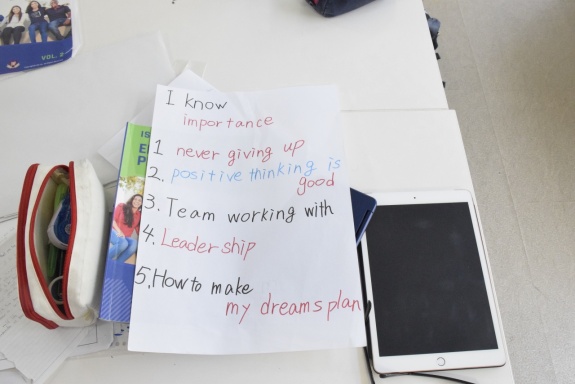 VOL. 2
IS
E
P
I know
importance
1 never giving up
2. positive thinking is
good
3. Team working with
4. Leadership
5. How to make
my dreams plan